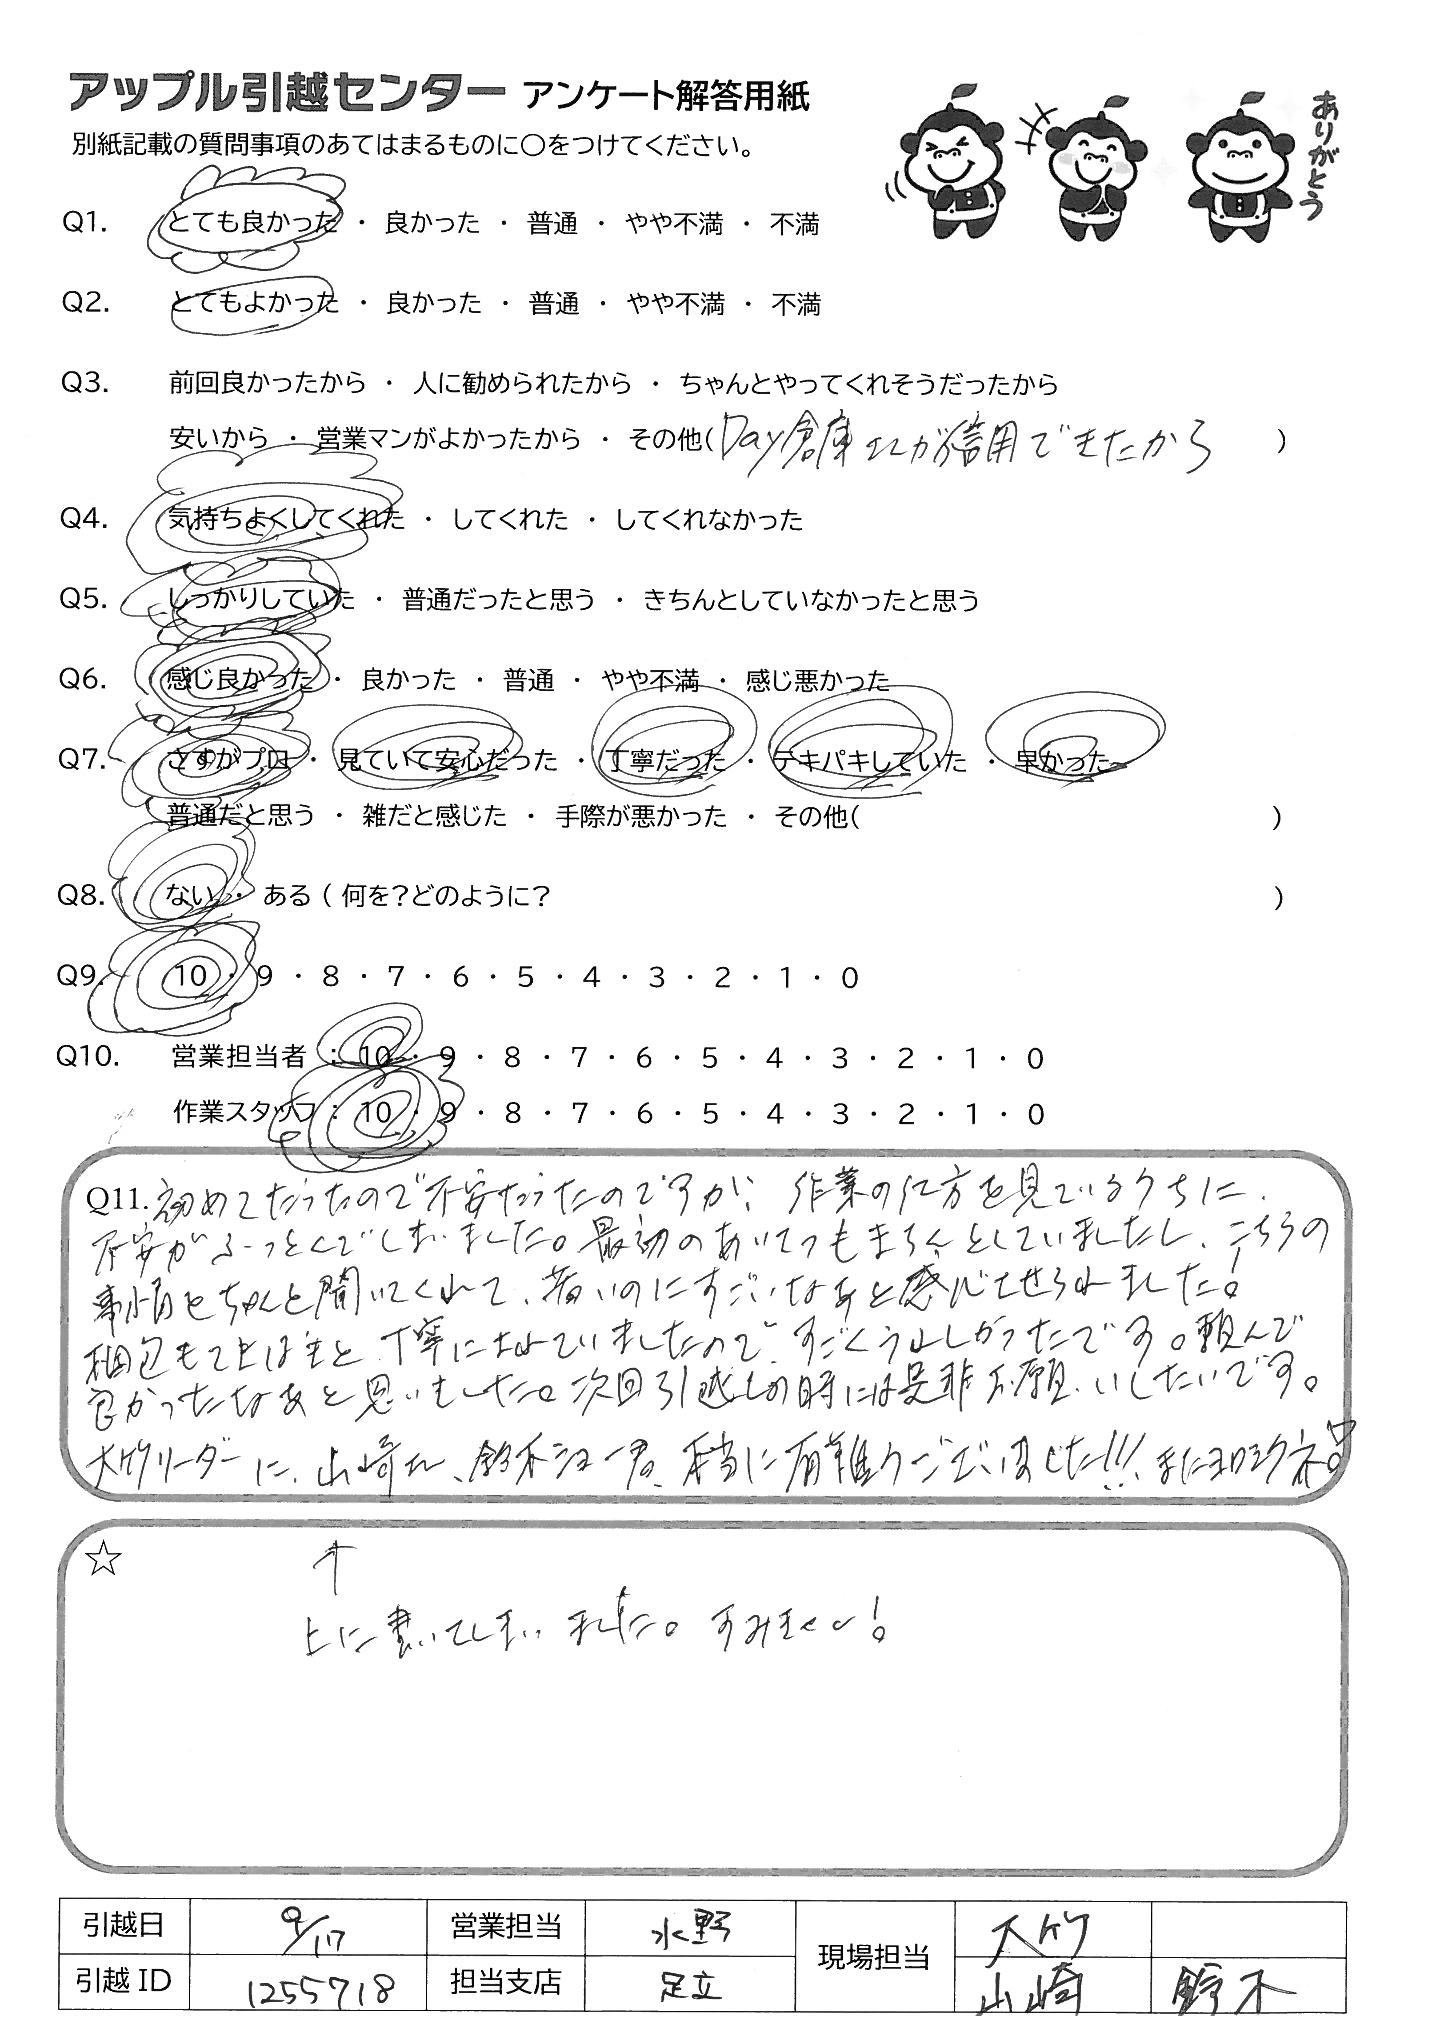 アップル引越センター アンケート解答用紙
別紙記載の質問事項のあてはまるものに○をつけてください。
ありがとう
Q1. とても良かった ・ 良かった ・ 普通 ・ やや不満 ・ 不満
Q2. とてもよかった ・ 良かった ・ 普通 ・ やや不満 ・ 不満
Q3. 前回良かったから ・ 人に勧められたから ・ ちゃんとやってくれそうだったから
安いから ・ 営業マンがよかったから ・ その他( Day倉庫さんが信用できたから )
Q4. 気持ちよくしてくれた ・ してくれた ・ してくれなかった
Q5. しっかりしていた ・ 普通だったと思う ・ きちんとしていなかったと思う
Q6. 感じ良かった ・ 良かった ・ 普通 ・ やや不満 ・ 感じ悪かった
Q7. さすがプロ ・ 見ていて安心だった ・ 丁寧だった ・ テキパキしていた ・ 早かった
普通だと思う ・ 雑だと感じた ・ 手際が悪かった ・ その他( )
Q8. ない ・ ある ( 何を?どのように? )
Q9. 10 ・ 9 ・ 8 ・ 7 ・ 6 ・ 5 ・ 4 ・ 3 ・ 2 ・ 1 ・ 0
Q10. 営業担当者 : 10 ・ 9 ・ 8 ・ 7 ・ 6 ・ 5 ・ 4 ・ 3 ・ 2 ・ 1 ・ 0
作業スタッフ : 10 ・ 9 ・ 8 ・ 7 ・ 6 ・ 5 ・ 4 ・ 3 ・ 2 ・ 1 ・ 0
Q11. 初めてだったので不安だったのですが、作業の仕方を見ているうちに、
不安がふっとんでしまいました。最初のあいさつもきちんとしていましたし、こちらの
事情もちゃんと聞いてくれて、若いのにすごいなぁと感心させられました!
梱包も 丁寧にされていましたので、すごくうれしかったです。頼んで
良かったなぁと思いました。次回引越しの時には是非お願いしたいです。
大竹リーダーに、山崎さん、鈴木ショー君、本当に有難うございました!!! またヨロシクネ♡
☆ ↑
上に書いてしまいました。すみません!
引越日 9/17 営業担当 水野 現場担当 大竹
引越ID 1255718 担当支店 足立 山崎 鈴木